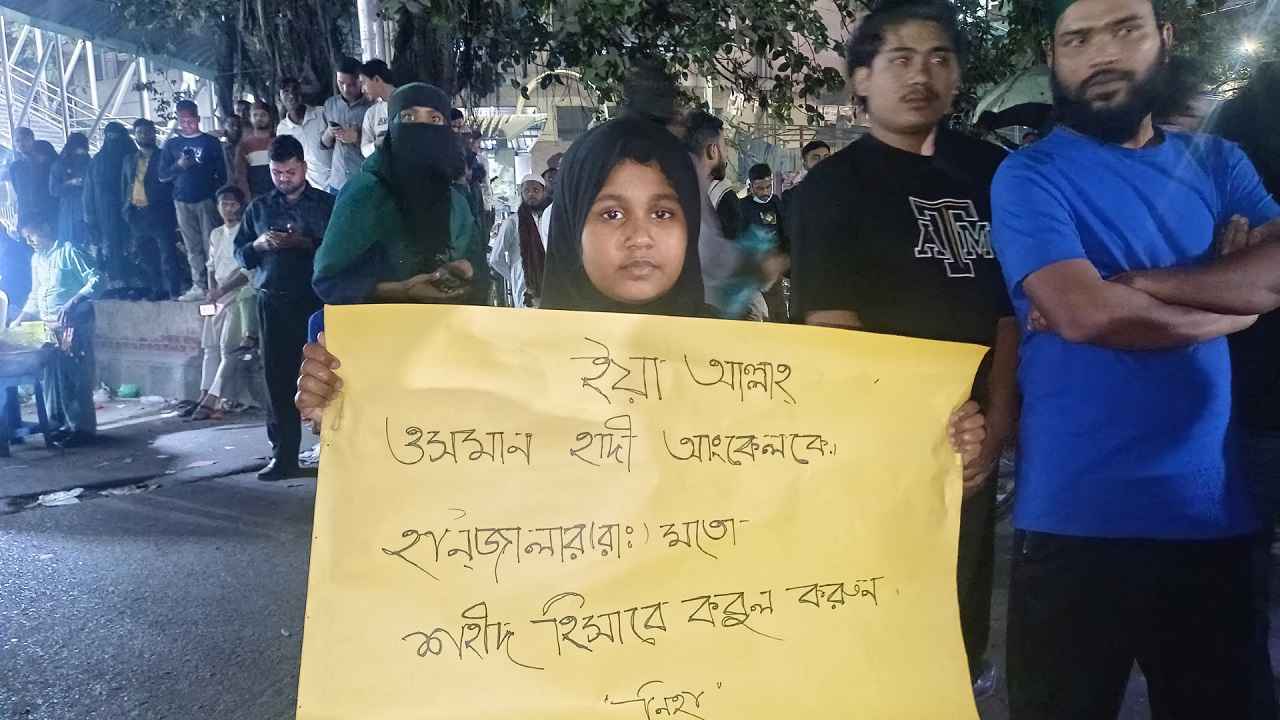 ইয়া আল্লাহ্
ওসমান হাদী আংকেলকে।
হান্জালার(রাঃ) মতো
শহীদ হিসাবে কবুল করুন।
"নিহা"
ATM